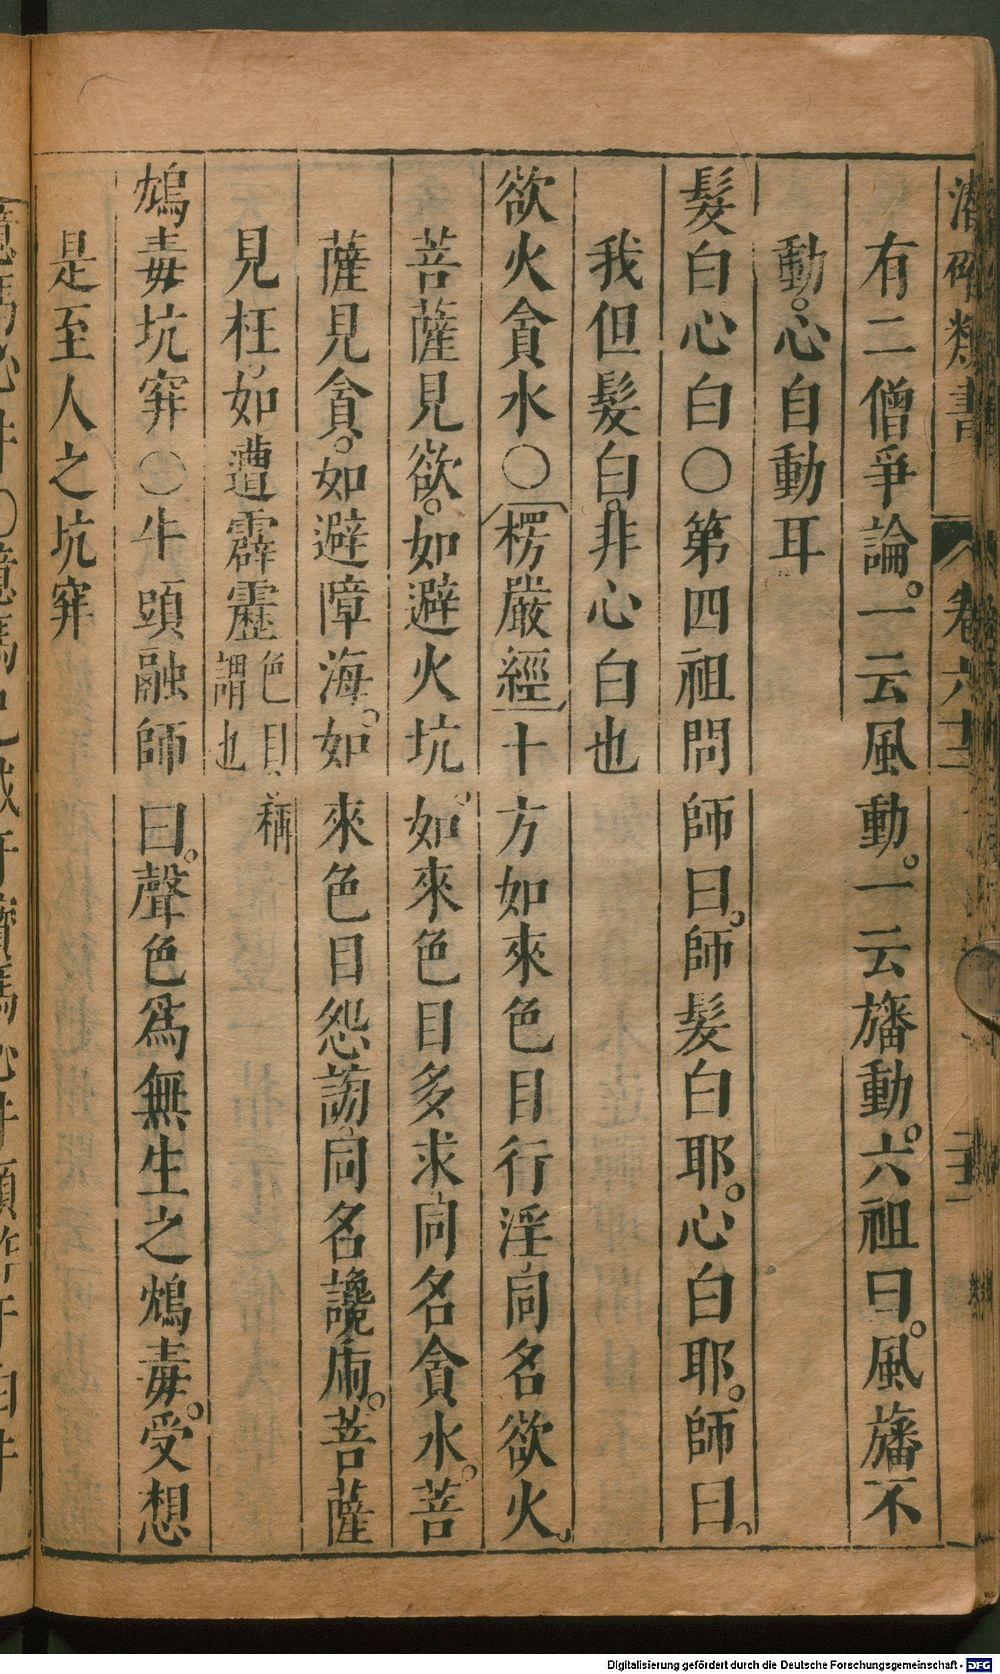 潛確類書 卷六十二
有二僧爭論。一云風動。一云旛動。六祖曰。風旛不
動。心自動耳
髮白心白〇第四祖問師曰。師髮白耶。心白耶。師曰。
我但髮白。非心白也
欲火貪水〇楞嚴經十方如來色目行淫同名欲火。
菩薩見欲。如避火坑。如來色目多求同名貪水。菩
薩見貪。如避瘴海。如來色目怨謗同名讒虎。菩薩
見枉。如遭霹靂色目稱謂也
鴆毒坑穽〇牛頭融師曰。聲色為無生之鴆毒。受想
是至人之坑穽
Digitalisierung gefördert durch die Deutsche Forschungsgemeinschaft - DFG